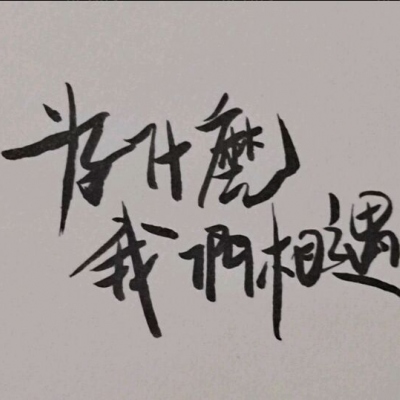 为什麼
我們相遇